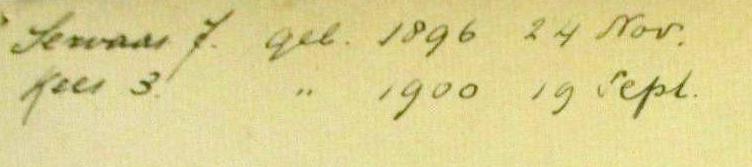 Servaas 7. geb. 1896 24 Nov.
Kees 3. " 1900 19 Sept.